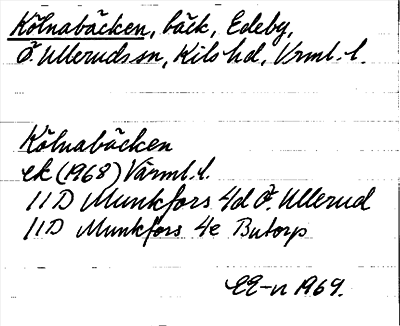 Kölnabäcken, bäck, Edeby,
Ö. Ulleruds sn, Kils hd, Vrml. l.
Kölnabäcken
ek (1968) Värml. l.
11D Munkfors 4d Ö. Ullerud
11D Munkfors 4e Butorp
EE-n 1969.